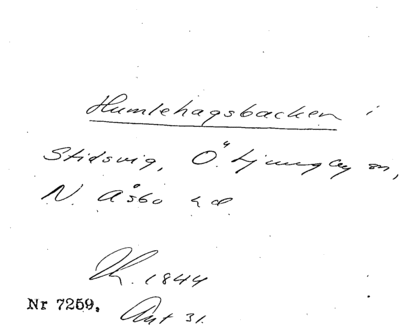 Humlehagsbacken i
Stidsvig, Ö. Ljungby sn,
N. Åsbo hd
1844
Nr 7259. Ant 31.